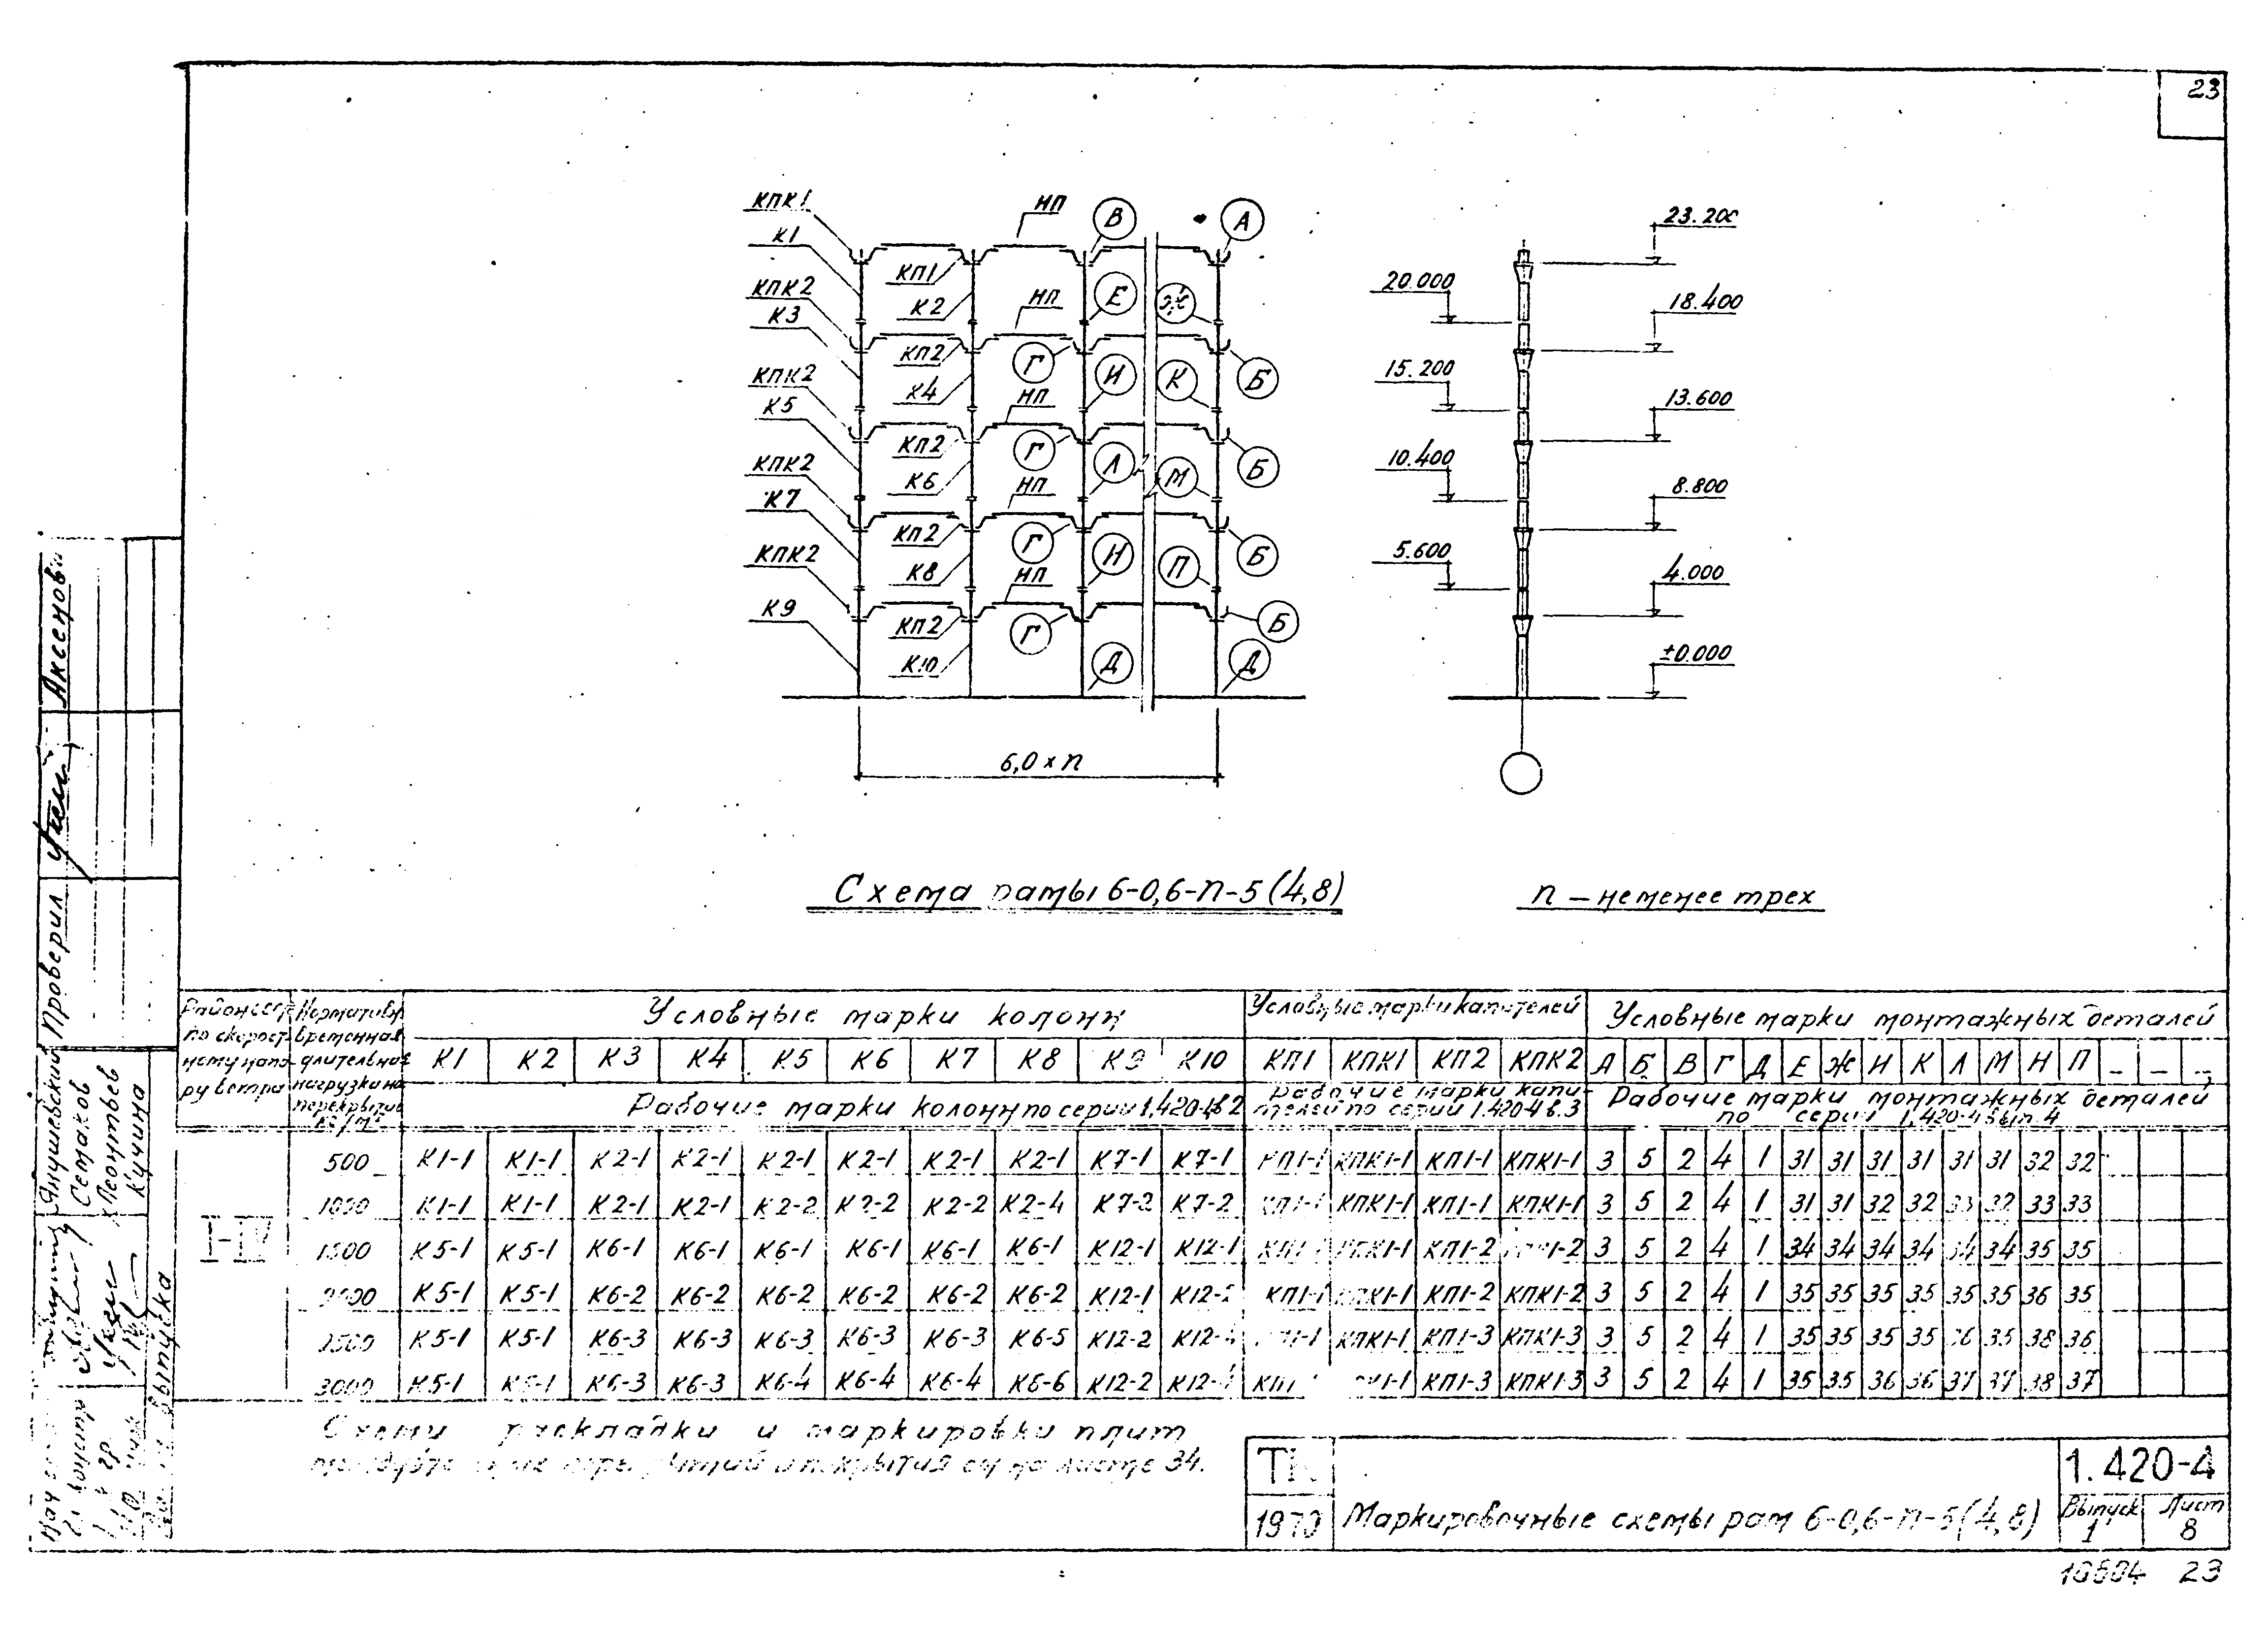 23
КПК1 НП В А
К1
КП1
КПК2 К2 НП Е Ж
К3
КП2 Г И К Б
КПК2 К4 НП
К5
КП2 Г Л М Б
КПК2 К6 НП
К7
КП2 Г Н П Б
КПК2 К8 НП
К9
КП2 Г Б
К10 Д Д
6,0 × п
23.200
20.000
18.400
15.200
13.600
10.400
8.800
5.600
4.000
±0.000
Схема рамы 6-0,6-п-5(4,8)
п – не менее трех
Условные марки колонн
Условные марки капителей
Условные марки монтажных деталей
по скорост-
ному напо-
ру ветра
временная
длительная
нагрузка на
перекрытие
К1 К2 К3 К4 К5 К6 К7 К8 К9 К10 КП1 КПК1 КП2 КПК2 А Б В Г Д Е Ж И К Л М Н П – – –
Рабочие марки колонн по серии 1.420-4 в.2
Рабочие марки капи-
телей по серии 1.420-4 в.3
Рабочие марки монтажных деталей
по серии 1.420-4 вып.4
I-IV
500 К1-1 К1-1 К2-1 К2-1 К2-1 К2-1 К2-1 К2-1 К7-1 К7-1 КП1-1 КПК1-1 КП1-1 КПК1-1 3 5 2 4 1 31 31 31 31 31 31 32 32
1000 К1-1 К1-1 К2-1 К2-1 К2-2 К2-2 К2-2 К2-4 К7-2 К7-2 КП1-1 КПК1-1 КП1-1 КПК1-1 3 5 2 4 1 31 31 32 32 33 32 33 33
1500 К5-1 К5-1 К6-1 К6-1 К6-1 К6-1 К6-1 К6-1 К12-1 К12-1 КПК1-1 КП1-2 КПК1-2 3 5 2 4 1 34 34 34 34 34 34 35 35
2000 К5-1 К5-1 К6-2 К6-2 К6-2 К6-2 К6-2 К6-2 К12-1 КП1-1 КПК1-1 КП1-2 КПК1-2 3 5 2 4 1 35 35 35 35 35 35 36 35
2500 К5-1 К5-1 К6-3 К6-3 К6-3 К6-3 К6-3 К6-5 К12-2 КПК1-1 КП1-3 КПК1-3 3 5 2 4 1 35 35 35 35 36 35 38 36
3000 К5-1 К5-1 К6-3 К6-3 К6-4 К6-4 К6-4 К6-6 К12-2 КП1-3 КПК1-3 3 5 2 4 1 35 35 36 36 37 37 38 37
раскладки и маркировки плит
покрытия см на листе 34.
ТК
1970
Маркировочные схемы рам 6-0,6-п-5(4,8)
1.420-4
Выпуск
1
Лист
8
23
Проверил Аксенов
Янушевский
Сетаков
Леонтьев
Кичина
выпуска